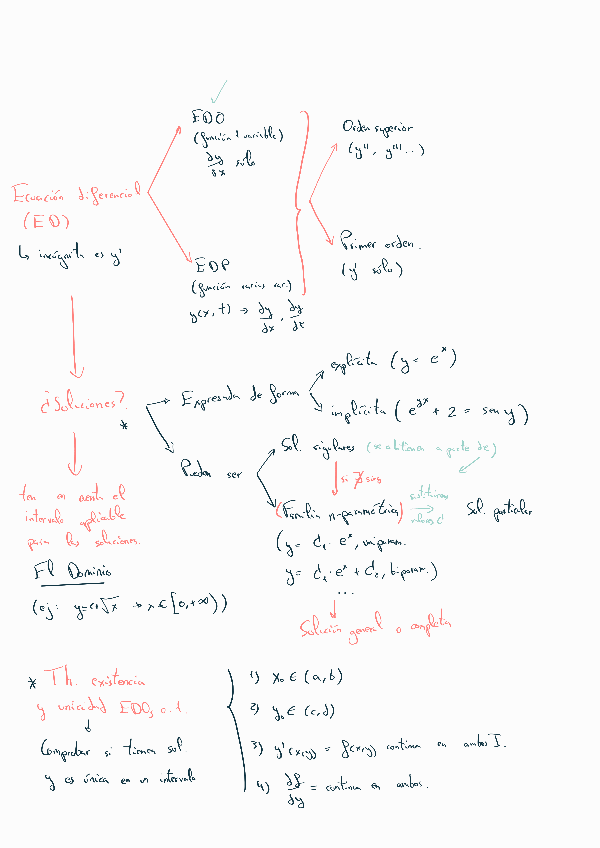 EDO
(función 1 variable)
∂y/∂x sólo
Orden superior
(y'', y'''..)
Ecuación diferencial
(ED)
↳ incógnita es y'
Primer orden.
(y' sólo)
EDP
(función varias var.)
y(x,t) → ∂y/∂x, ∂y/∂t
¿Soluciones?
*
Expresada de forma
explícita (y = e^x)
implícita (e^yx + 2 = sen y)
Pueden ser
Sol. sigulares (se obtienen a parte de)
si ∄ sing
(Familia n-paramétrica)
sustituimos
valores C
Sol. particular
(y = C₁ · e^x, uniparam.
y = C₁ · e^x + C₂, biparam.)
...
Solución general o completa
ten en cuenta el
intervalo aplicable
para las soluciones.
El Dominio
(ej: y = √x → x ∈ [0,+∞))
* Th. existencia
y unicidad EDOs
Comprobar si tienen sol.
y es única en un intervalo
1) x₀ ∈ (a,b)
2) y₀ ∈ (c,d)
3) y'(x,y) = f(x,y) continua en ambos I.
4) ∂f/∂y = continua en ambos.